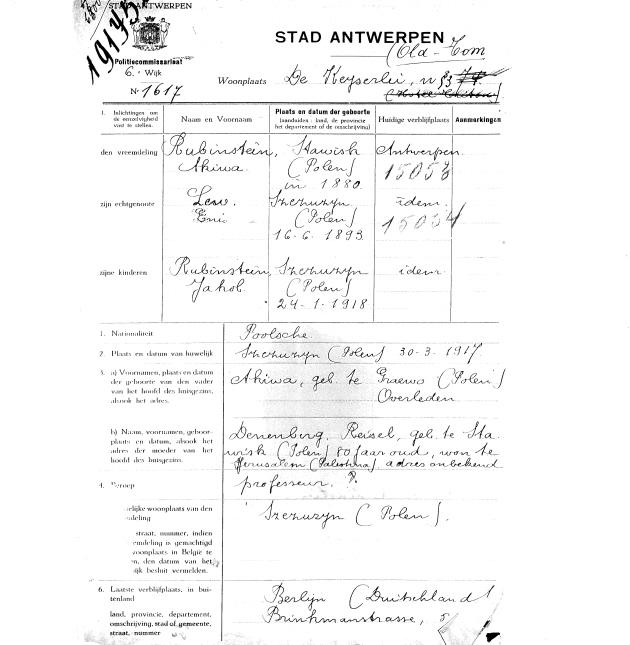 STAD ANTWERPEN
19173
Politiecommissariaat
6. Wijk
Nr 1617
STAD ANTWERPEN
(Old-Tom
Woonplaats De Keyserlei, n 53
1. Inlichtingen om de eenzelvigheid vast te stellen. Naam en Voornaam Plaats en datum der geboorte (aanduiden: land, de provincie het departement of de omschrijving) Huidige verblijfplaats Aanmerkingen
den vreemdeling Rubinstein, Stawisk Antwerpen
Akiwa. (Polen)
in 1880.
zijn echtgenoote Lew. Szczuczyn idem.
Enis (Polen)
16-6-1893
zijne kinderen Rubinstein, Szczuczyn idem
Jakob. (Polen)
24-1-1918
1. Nationaliteit Poolsche
2. Plaats en datum van huwelijk Szczuczyn (Polen) 30-3-1917
3. a) Voornamen, plaats en datum der geboorte van den vader van het hoofd des huisgezins, alsook het adres. Akiwa, geb. te Graewo (Polen)
Overleden
b) Naam, voornamen, geboorteplaats en datum, alsook het adres der moeder van het hoofd des huisgezins. Denenberg, Reisel, geb. te Sta
wisk (Polen) 80 jaar oud, won te
Jerusalem (Palestina) adres onbekend
4. Beroep professeur.
elijke woonplaats van den
mdeling Szczuczyn (Polen).
straat, nummer, indien
emdeling is gemachtigd
voonplaats in België te
n, den datum van het
ijk besluit vermelden.
6. Laatste verblijfplaats, in buitenland Berlijn (Duitschland)
land, provincie, departement, omschrijving, stad of gemeente, straat, nummer Brinkmanstrasse,